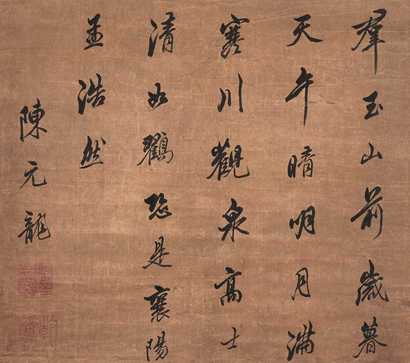 群玉山前歲暮
天午晴明月滿
寒川觀泉高士
清如鶴恐是襄陽
孟浩然
陳元龍